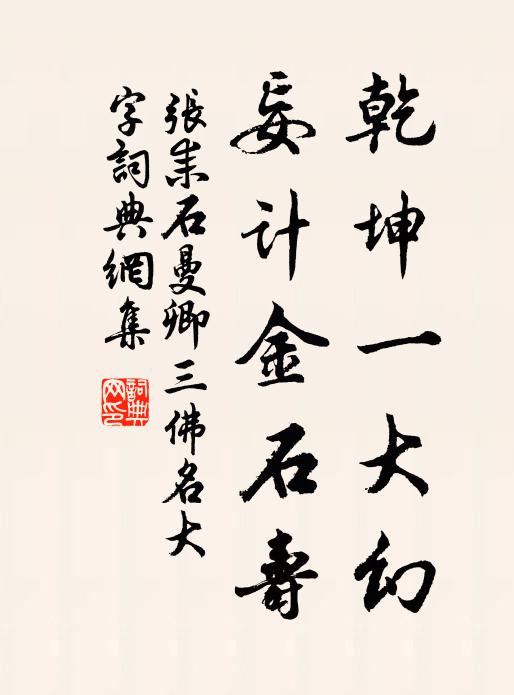 乾坤一大幻
妄计金石壽
張耒石曼卿三佛名大
字詞典網集
詞典网印